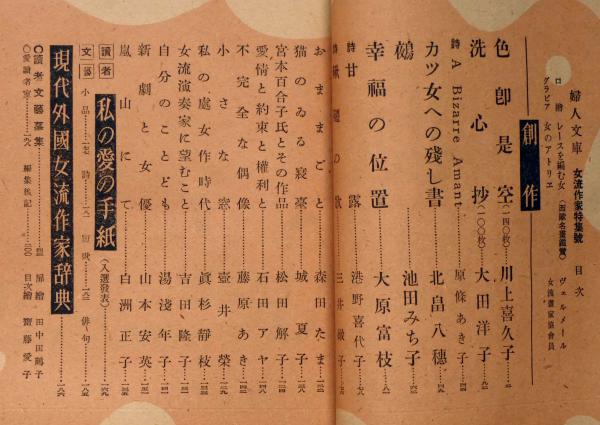 婦人文庫 女流作家特集號 目次
口繪 レースを編む女（西歐名畫鑑賞） ヴェルメール
グラビア 女のアトリエ 女流畫家協會員
創作
色卽是空（一四〇枚） 川上喜久子
洗心抄（一〇〇枚） 大田洋子
詩 A Bizarre Amant 原條あき子
カツ女への殘し書 北畠八穂
鵺 池田みち子
幸福の位置 大原富枝
詩 甘露 港野喜代子
詩 の歌 三井
おままごと 森田たま
猫のゐる寢臺 城夏子
宮本百合子氏とその作品 松田解子
愛情と約束と權利と 石田アヤ
不完全な偶像 藤原あき
小さな窓 壺井榮
私の處女作時代 眞杉靜枝
女流演奏家に望むこと 吉田隆子
自分のことども 湯淺年子
新劇と女優 山本安英
嵐山にて 白洲正子
讀者文藝 私の愛の手紙（入選發表）
小品 詩 短歌 俳句
現代外國女流作家辞典
〇讀者文藝募集 扉繪 田中田鶴子
〇愛讀者室 編集後記 目次繪 齋藤愛子